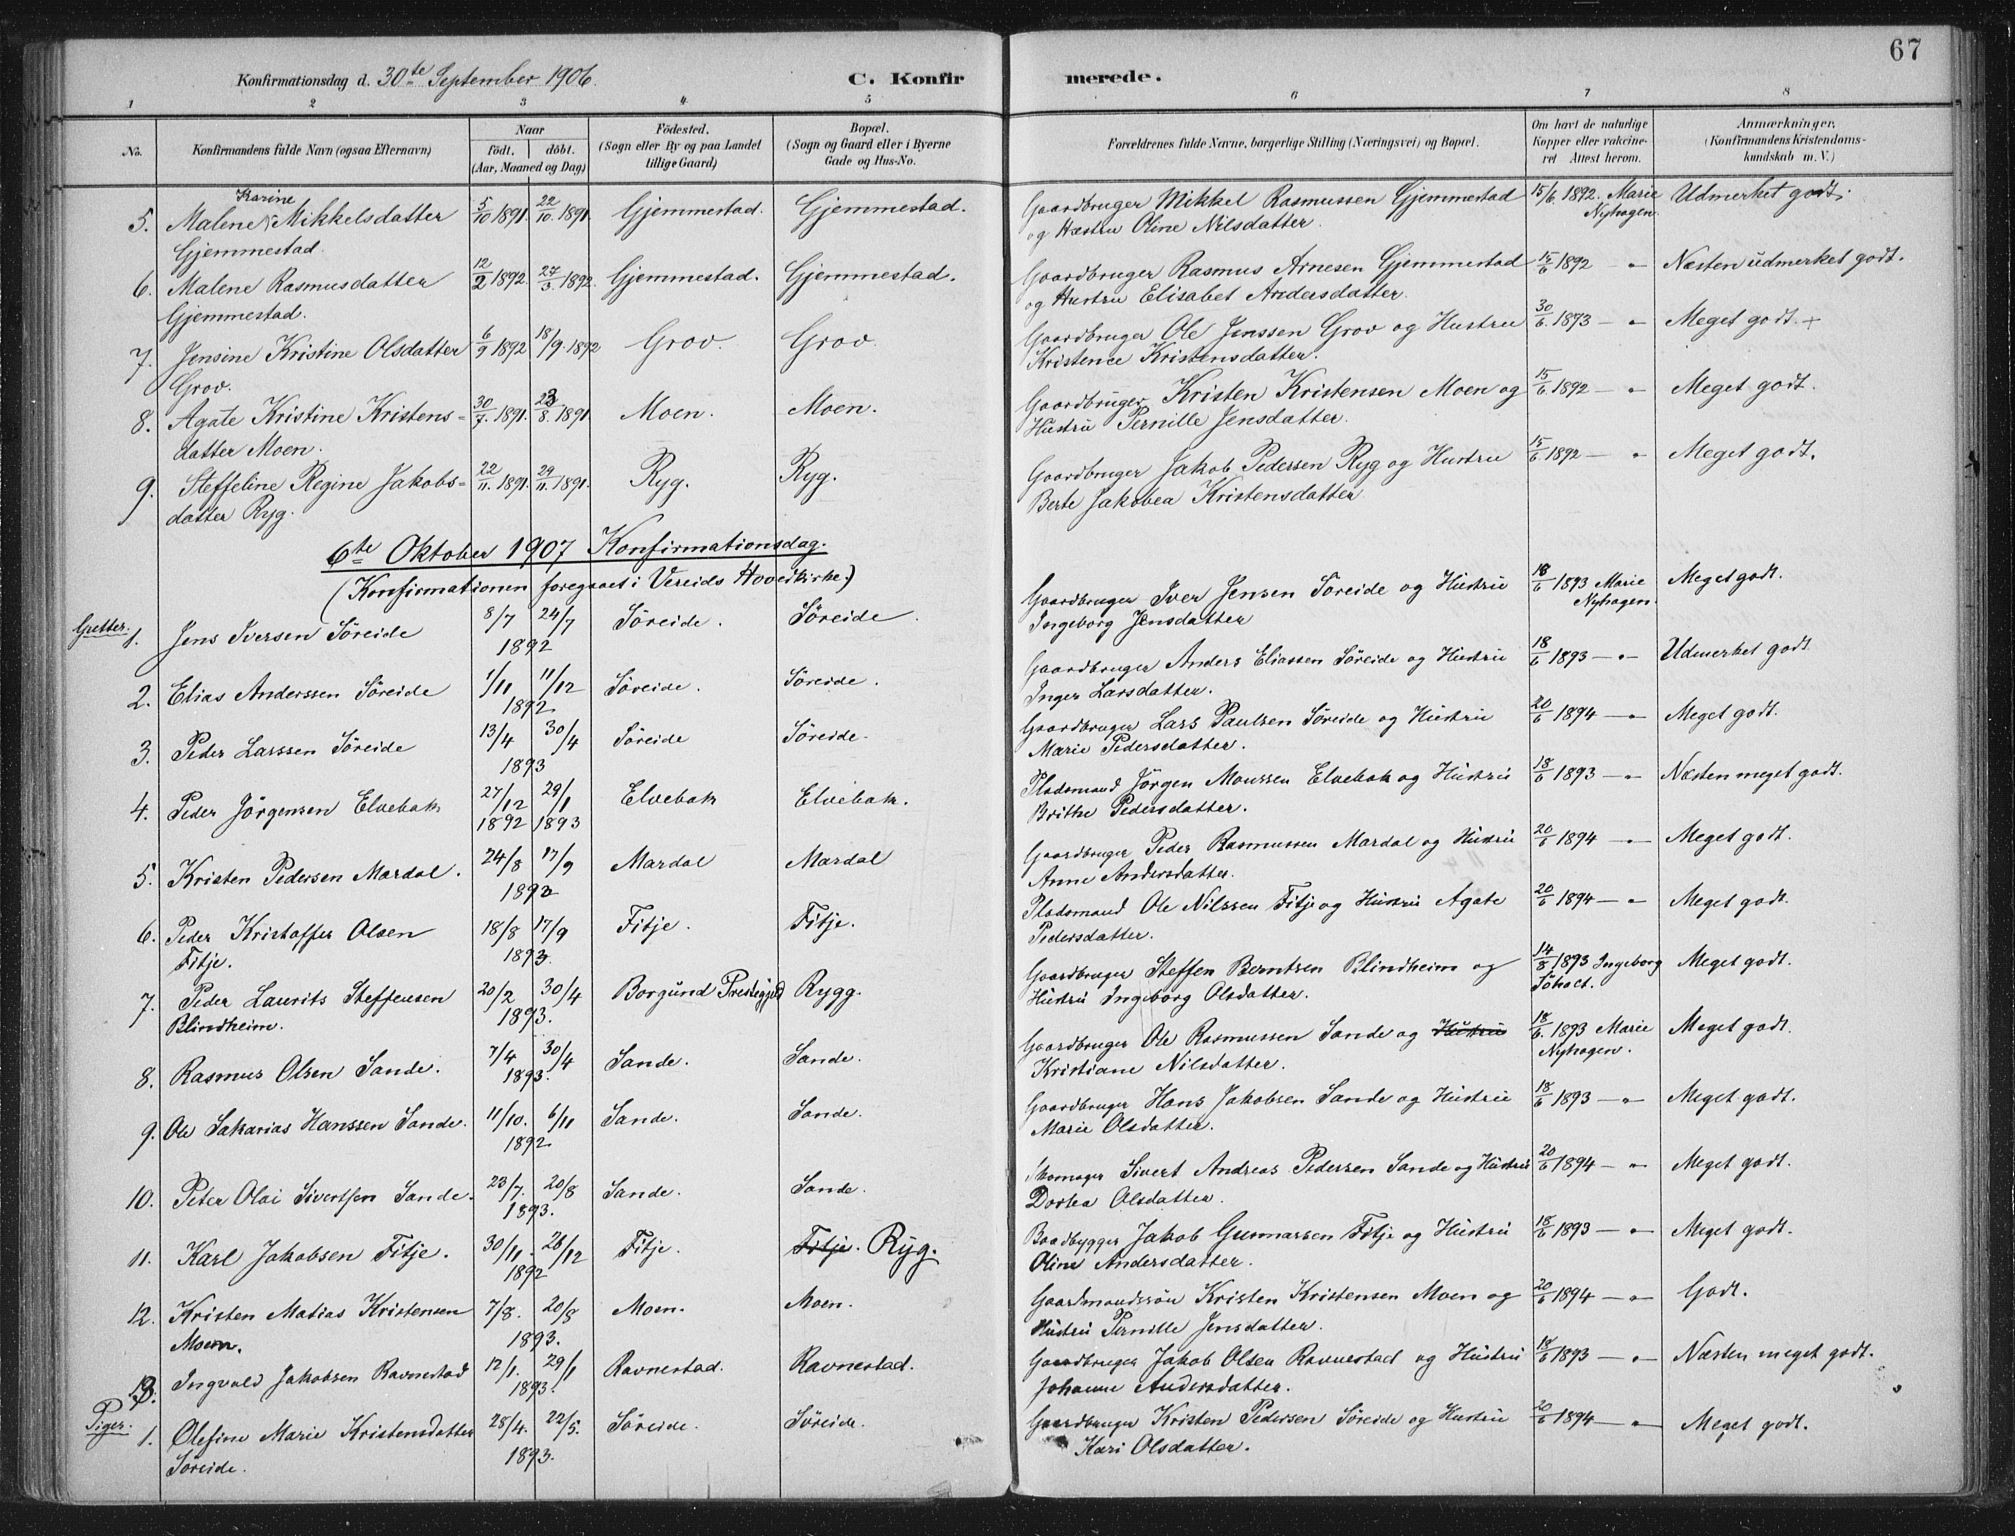 67
Konfirmationsdag d. 30te September 1906.
C. Konfirmerede.
1 2 3 4 5 6 7 8
No.
Konfirmandens fulde Navn (ogsaa Efternavn)
Naar
födt. döbt.
(Aar, Maaned og Dag)
Födested.
(Sogn eller By og paa Landet
tillige Gaard)
Bopæl.
(Sogn og Gaard eller i Byerne
Gade og Hus-No.
Forældrenes fulde Navne, borgerlige Stilling (Næringsvei) og Bopæl.
Om havt de naturlige
Kopper eller vakcine-
ret Attest herom.
Anmærkninger.
(Konfirmandens Kristendoms-
kundskab m. V.)
Karine
5. Malene Mikkelsdatter 5/10 1891. 22/10. 1891. Gjemmestad. Gjemmestad. Gaardbruger Mikkel Rasmussen Gjemmestad 15/6. 1892. Marie Udmerket godt.
Gjemmestad. og Hustru Oline Nilsdatter. Nyhagen.
6. Malene Rasmusdatter 12/2 1892. 27/3. 1892. Gjemmestad. Gjemmestad. Gaardbruger Rasmus Arnesen Gjemmestad 15/6 1892 — " Næsten udmerket godt.
Gjemmestad. og Hustru Elisabet Andersdatter.
7. Jensine Kristine Olsdatter 6/9 1892 18/9. 1892 Grov Grov. Gaardbruger Ole Jenssen Grov og Hustru 30/6. 1873 — " Meget godt. +
Grov. Kristence Kristensdatter.
8. Agate Kristine Kristens- 30/7. 1891. 23/8. 1891. Moen. Moen. Gaardbruger Kristen Kristensen Moen og 15/6. 1892 — " Meget godt.
datter Moen. Hustru Pernille Jensdatter.
9. Steffeline Regine Jakobs- 22/11. 1891. 29/11. 1891. Ryg. Ryg. Gaardbruger Jakob Pedersen Ryg og Hustru 15/6 1892 — " Meget godt.
datter Ryg. Berte Jakobea Kristensdatter.
6te Oktober 1907 Konfirmationsdag.
(Konfirmationen foregaaet i Vereids Hovedkirke.)
Gutter.
1. Jens Iversen Söreide 8/7 24/7 Söreide. Söreide. Gaardbruger Iver Jensen Söreide og Hustru 18/6 1893 Marie Meget godt.
1892 Ingeborg Jensdatter Nyhagen.
2. Elias Anderssen Söreide 1/11 11/12 Söreide. Söreide. Gaardbruger Anders Eliassen Söreide og Hustru 18/6 1893 — " — Udmerket godt
1892 Inger Larsdatter.
3. Peder Larssen Söreide 13/4 30/4 Söreide Söreide. Gaardbruger Lars Paulsen Söreide og Hustru 20/6 1894 — " Meget godt.
1893 Marie Pedersdatter.
4. Peder Jörgensen Elvebak 27/12 29/1 Elvebak Elvebak. Pladsmand Jörgen Monssen Elvebak og Hustru 18/6 1893 — " Næsten meget godt.
1892 1893 Brithe Pedersdatter.
5. Kristen Pedersen Mardal. 24/8 17/9 Mardal Mardal Gaardbruger Peder Rasmussen Mardal og Hustru 20/6 1894 — " Meget godt.
1892 Anne Andersdatter.
6. Peder Kristoffer Olsen 18/8 17/9 Fitje. Fitje. Pladsmand Ole Nilssen Fitje og Hustru Agate 20/6 1894 — " Meget godt.
Fitje. 1893 Pedersdatter.
7. Peder Laurits Steffensen 20/2 30/4 Borgund Prestegjeld Rygg. Gaardbruger Steffen Berntsen Blindheim og 14/8 1893 Ingeborg Meget godt.
Blindheim. 1893. Hustru Ingeborg Olsdatter.
8. Rasmus Olsen Sande. 7/4 30/4 Sande. Sande. Gaardbruger Ole Rasmussen Sande og Hustru 18/6. 1893 Marie Meget godt.
1893. Kristiane Nilsdatter. Nyhagen.
9. Ole Sakarias Hanssen Sande. 11/10. 6/11 Sande. Sande. Gaardbruger Hans Jakobsen Sande og Hustru 18/6 1893 — " Meget godt.
1892 Marie Olsdatter.
10. Peter Olai Sivertsen Sande. 23/7. 20/8 Sande. Sande. Skomager Sivert Andreas Pedersen Sande og Hustru 20/6 1894 — " Meget godt.
1893. Dortea Olsdatter.
11. Karl Jakobsen Fitje. 30/11. 26/12 Fitje. Fitje. Ryg. Baadbygger Jakob Gunnarssen Fitje og Hustru 18/6 1893 — " Meget godt.
1892 Oline Andersdatter.
12. Kristen Matias Kristensen 7/8. 20/8 Moen. Moen. Gaardmandssön Kristen Kristensen Moen og 20/6 1894 — " Godt.
Moen. 1893. Hustru Pernille Jensdatter.
13. Ingvald Jakobsen Ravnestad 12/1. 29/1 Ravnestad. Ravnestad. Gaardbruger Jakob Olsen Ravnestad og Hustru 18/6 1893 — " Næsten meget godt.
1893. Johanne Andersdatter.
Piger.
1. Olefine Marie Kristensdatter 28/4. 22/5. Söreide. Söreide. Gaardbruger Kristen Pedersen Söreide og Hustru 20/6 1894 — " Meget godt.
Söreide. 1893. Kari Olsdatter.